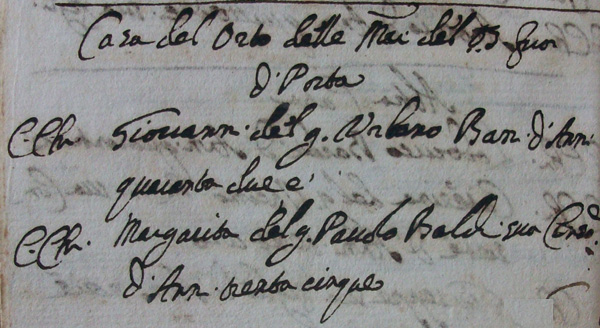 Casa del Orto delle Mai del B fuor
d'Porta
C. Ch. Giovann. del q. Urbano Ban. d'Ann.
quaranta due e
C. Ch. Margarita del q. Paulo Baldi sua Cons.
d'Ann. trenta cinque